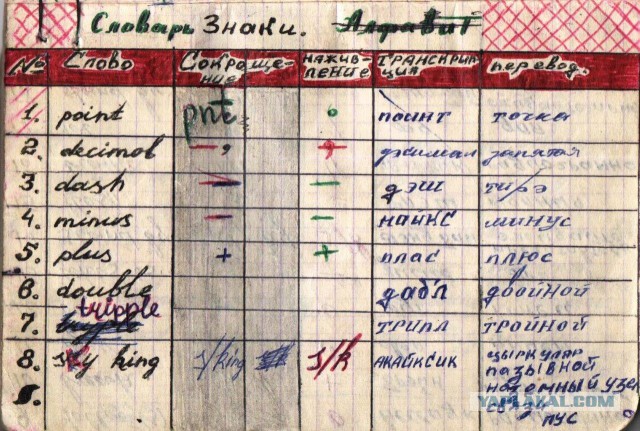 Словарь Знаки. Алфавит
№ Слово Сокраще-ние нажив-ление транскрип-ция перевод.
1. point pnt. поинт точка
2. decimol —, джимал запятая
3. dash — — дэш тирэ
4. minus — — майнс минус
5. plus + + плас плюс
6. double дабл двойной
7. tripple трипл тройной
8. sky king s/king s/k скайксик циркуляр
позывной
наземный узел
связи
пус
YAPLAKAL.COM